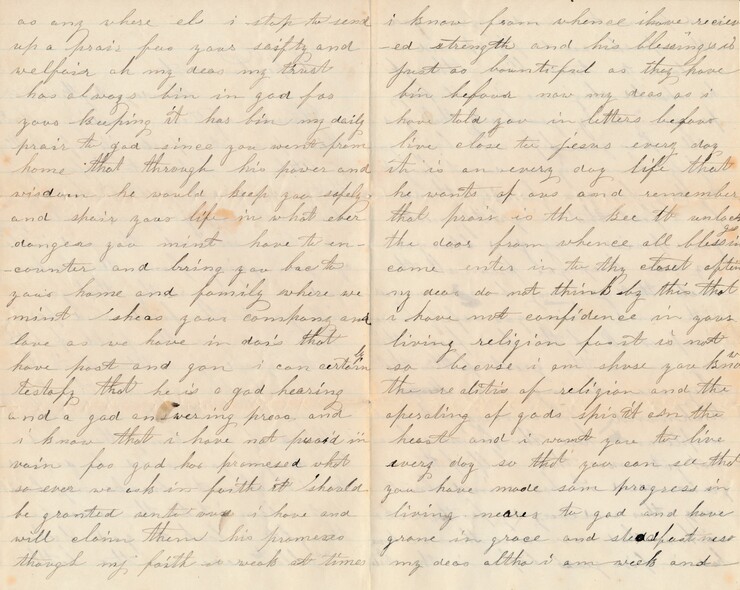 as any where els i stop to send
up a prair for your saifty and
welfair oh my deas my trust
has always bin in god for
your keeping it has bin my daily
prair to god since you went from
home that through his power and
wisdom he would keep you safely
and spair your life in what ever
dangers you mint have to en-
-counter and bring you bac to
your home and family where we
mint shear your company and
love as we have in dais that
have past and gon i can certainly
testafy that he is a god hearing
and a god answering prear and
i know that i have not praid in
vain for god has promesed what
so ever we ask in faith it should
be granted unto ous i have and
will claim them his promises
though my faith is weak at times
i know from whence i have reciev
-ed strength and his blessings is
just as bountiful as they have
bin befour now my deas as i
have told you in letters before
live close to jesus every day
it is an every day life that
he wants of ous and remember
that prair is the kee to unlock
the door from whence all blessings
come enter in to thy closet often
my dear do not think by this that
i have not confidence in your
living religion for it is not
so becose i am shure you know
the realitis of religion and the
operating of gods spirit on the
heart and i want you to live
every day so that you can see that
you have made som progress in
living nearer to god and have
grone in grace and stedfastness
my deas altho i am week and